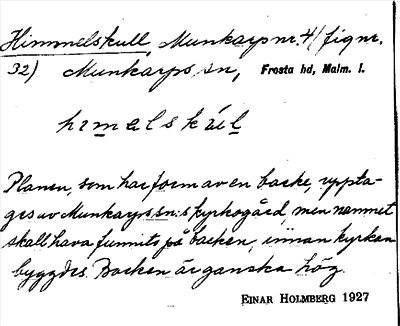 Himmelskull, Munkarp nr. 4/ fig nr.
32) Munkarps sn, Frosta hd, Malm. l.
himelskúl
Planen, som har form av en backe, uppta-
ges av Munkarps sn:s kyrkogård, men namnet
skall hava funnits på backen, innan kyrkan
byggdes. Backen är ganska hög.
EINAR HOLMBERG 1927